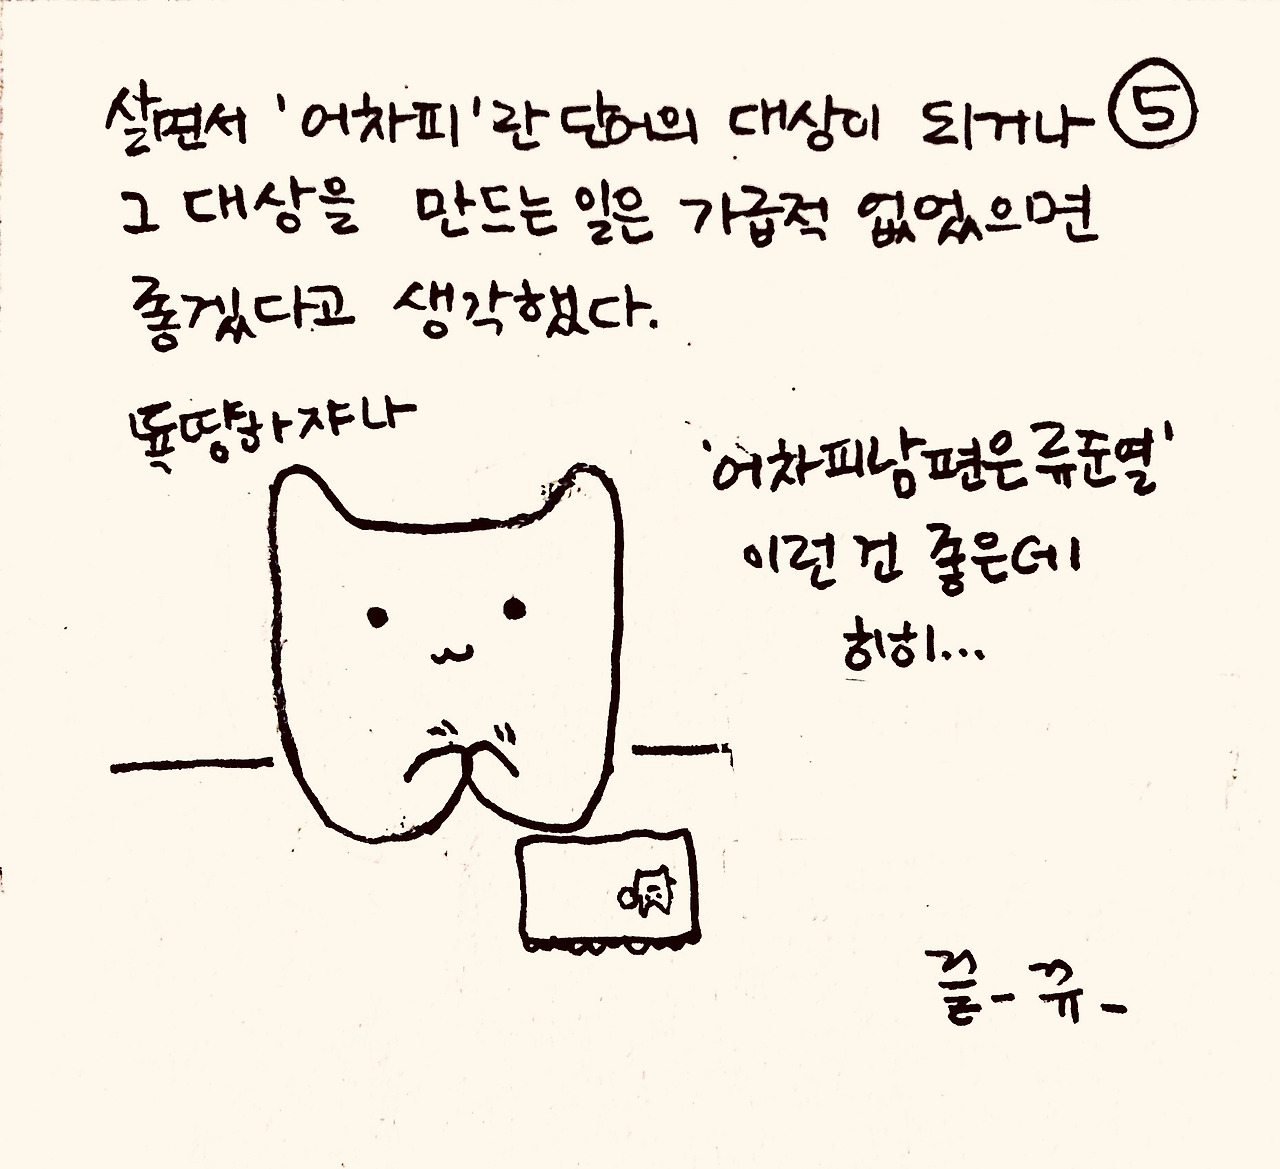 살면서 '어차피'란 단어의 대상이 되거나 ⑤
그 대상을 만드는 일은 가급적 없었으면
좋겠다고 생각했다.
'어차피남편은류준열'
이런 건 좋은데
히히...